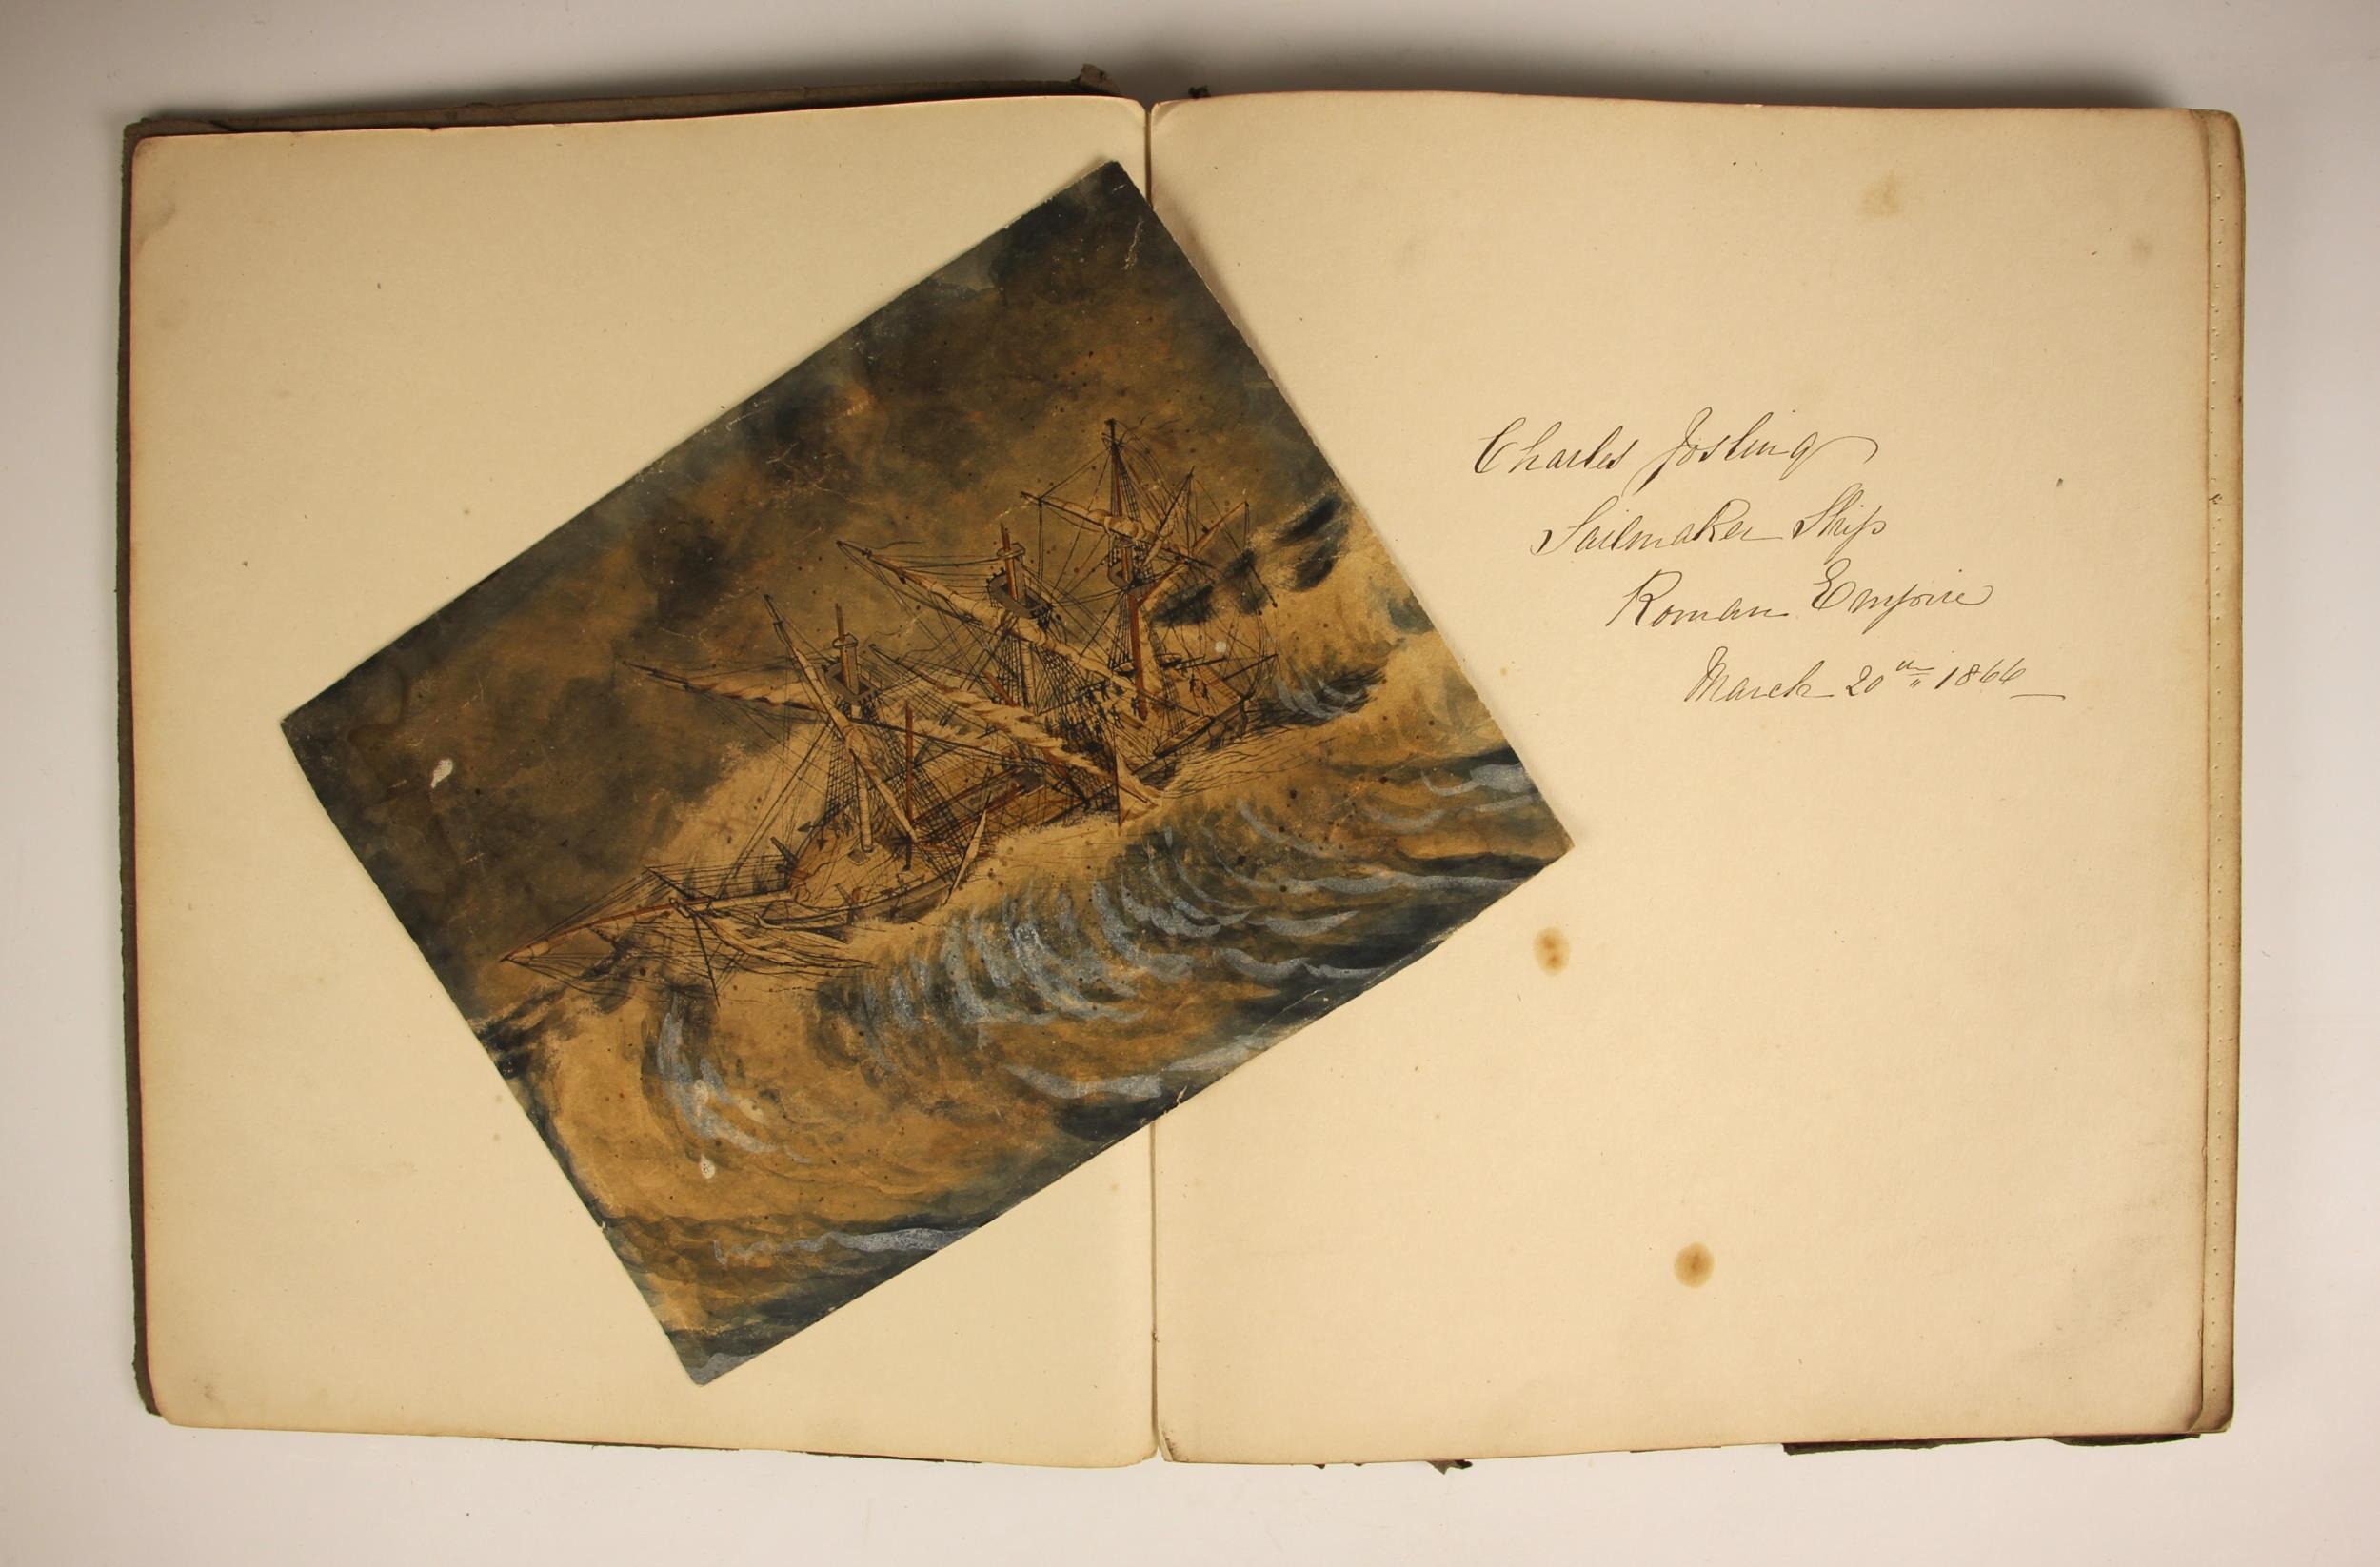 Charles Josling
Sailmaker Ship
Roman Empire
March 20th 1866